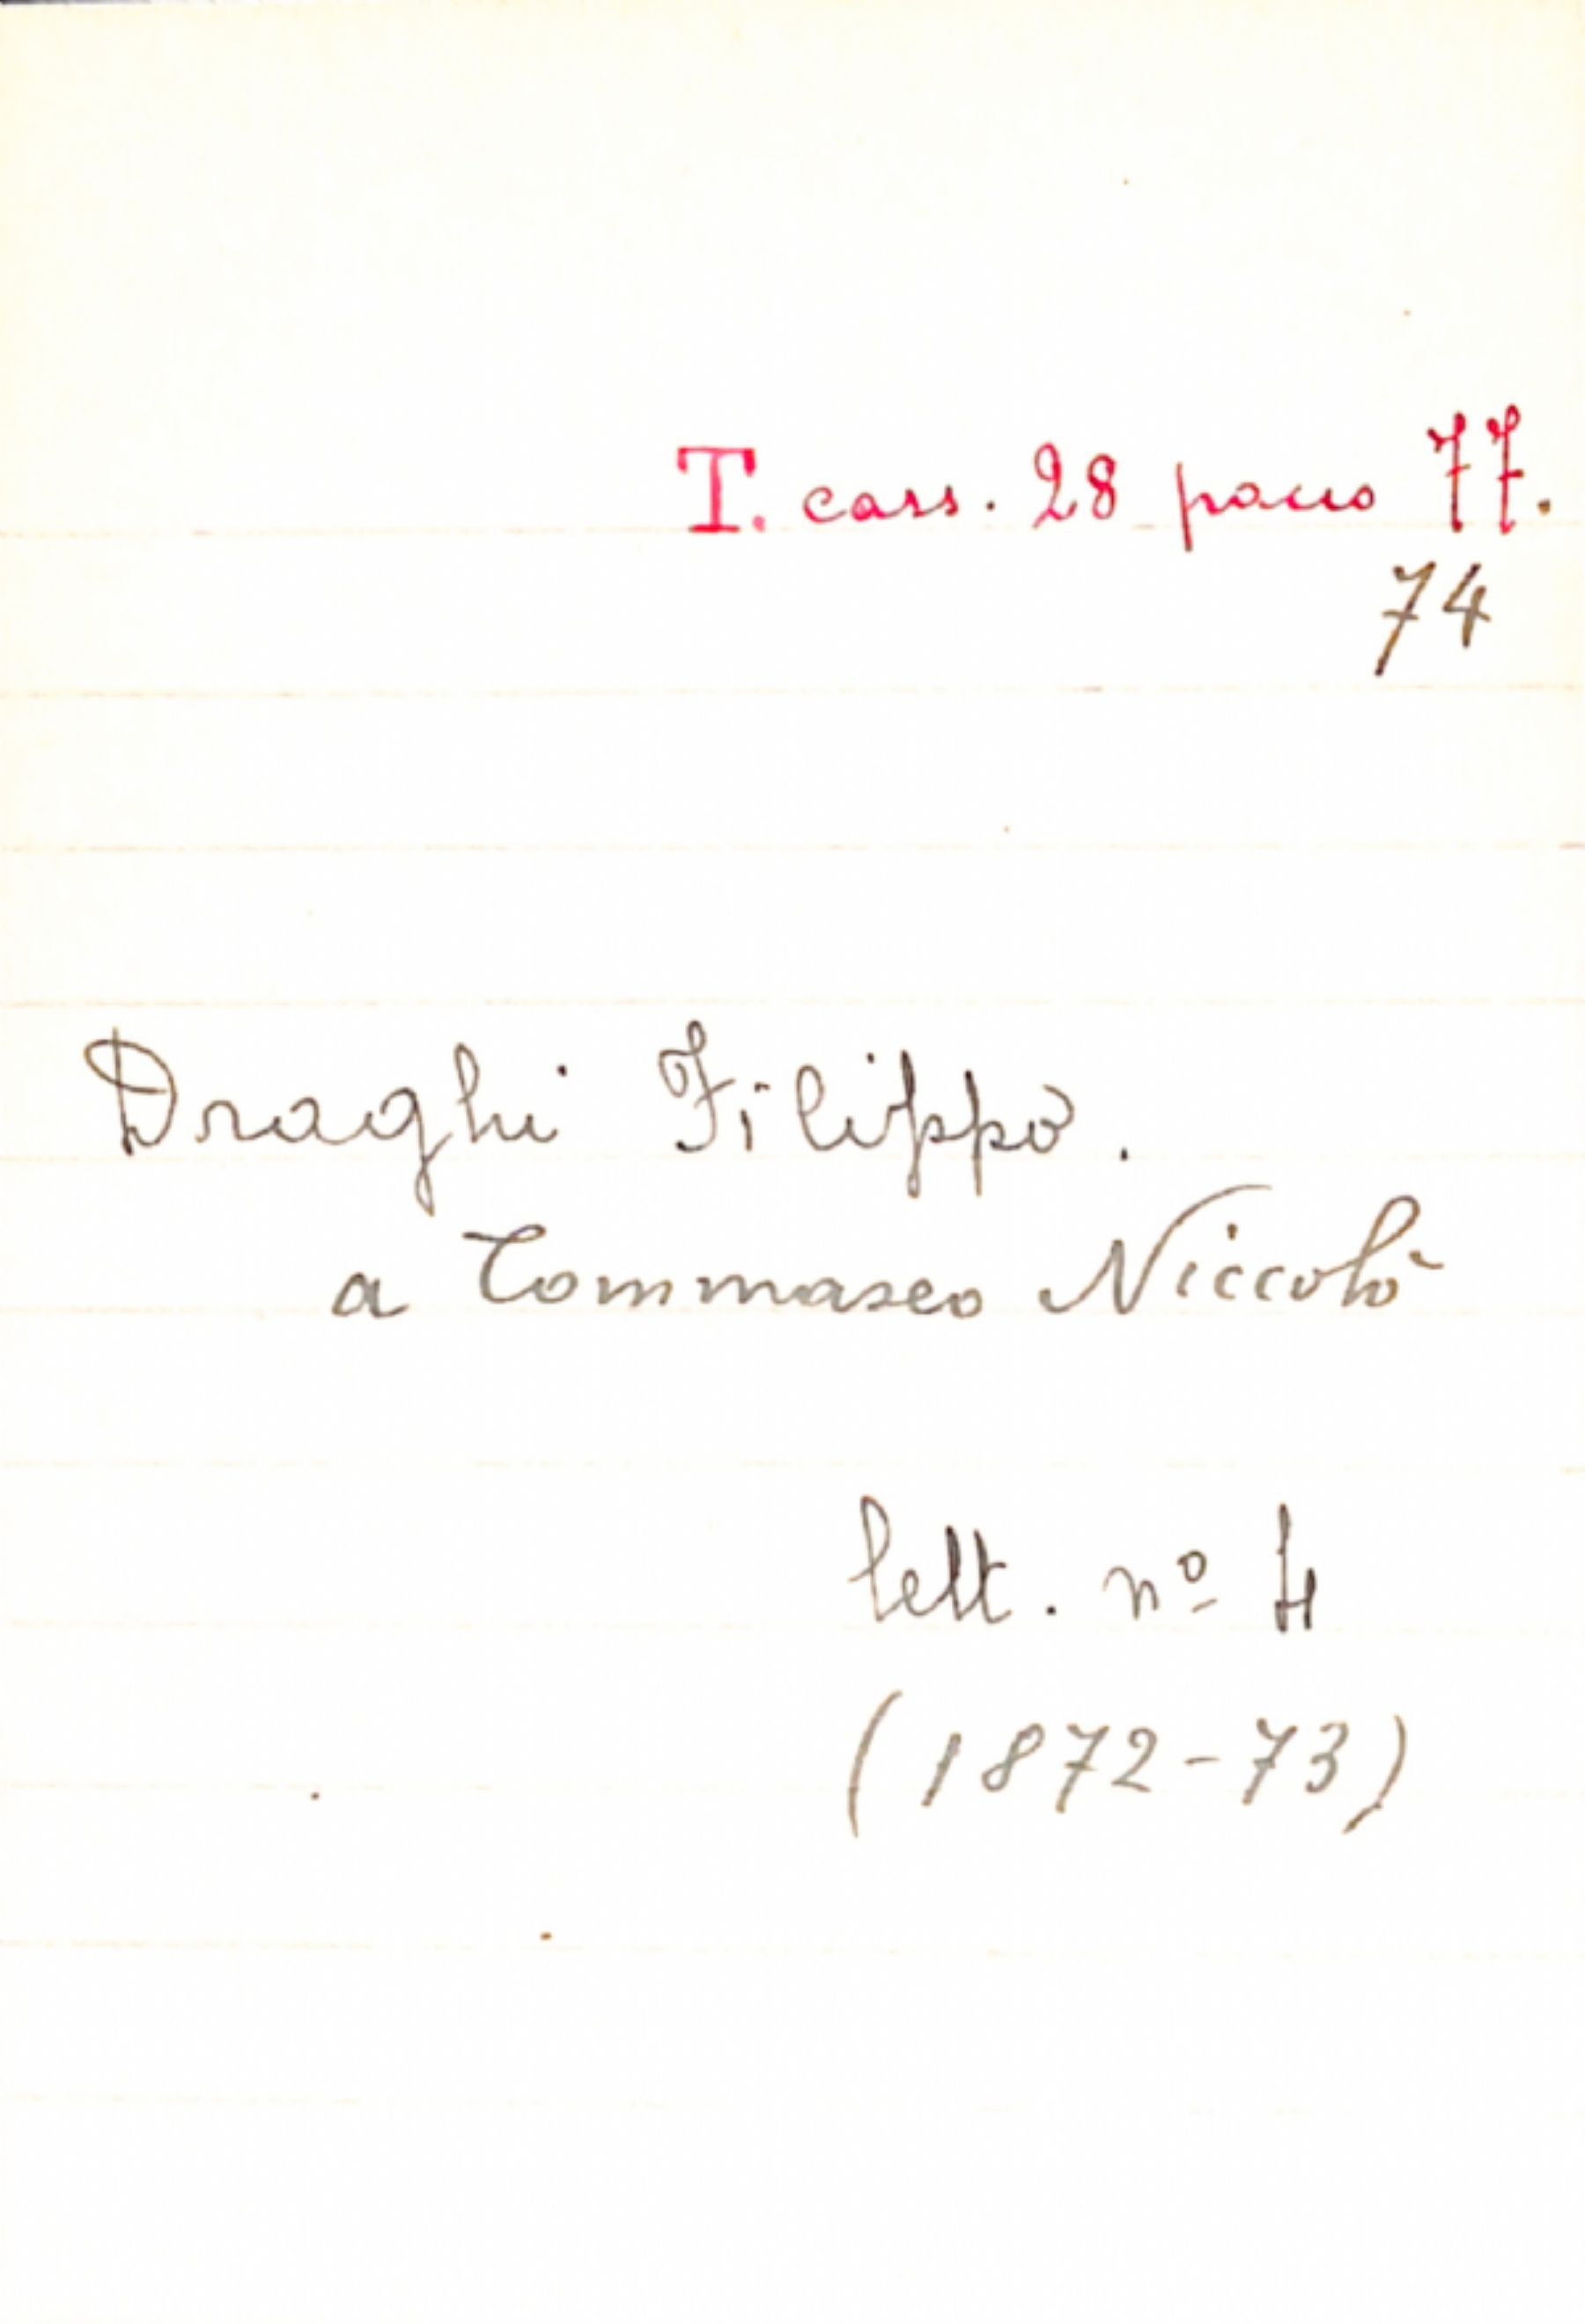 T. cass. 28 pacco 77.
74
Draghi Filippo.
a Tommaseo Niccolò
lett. nº 4
(1872-73)